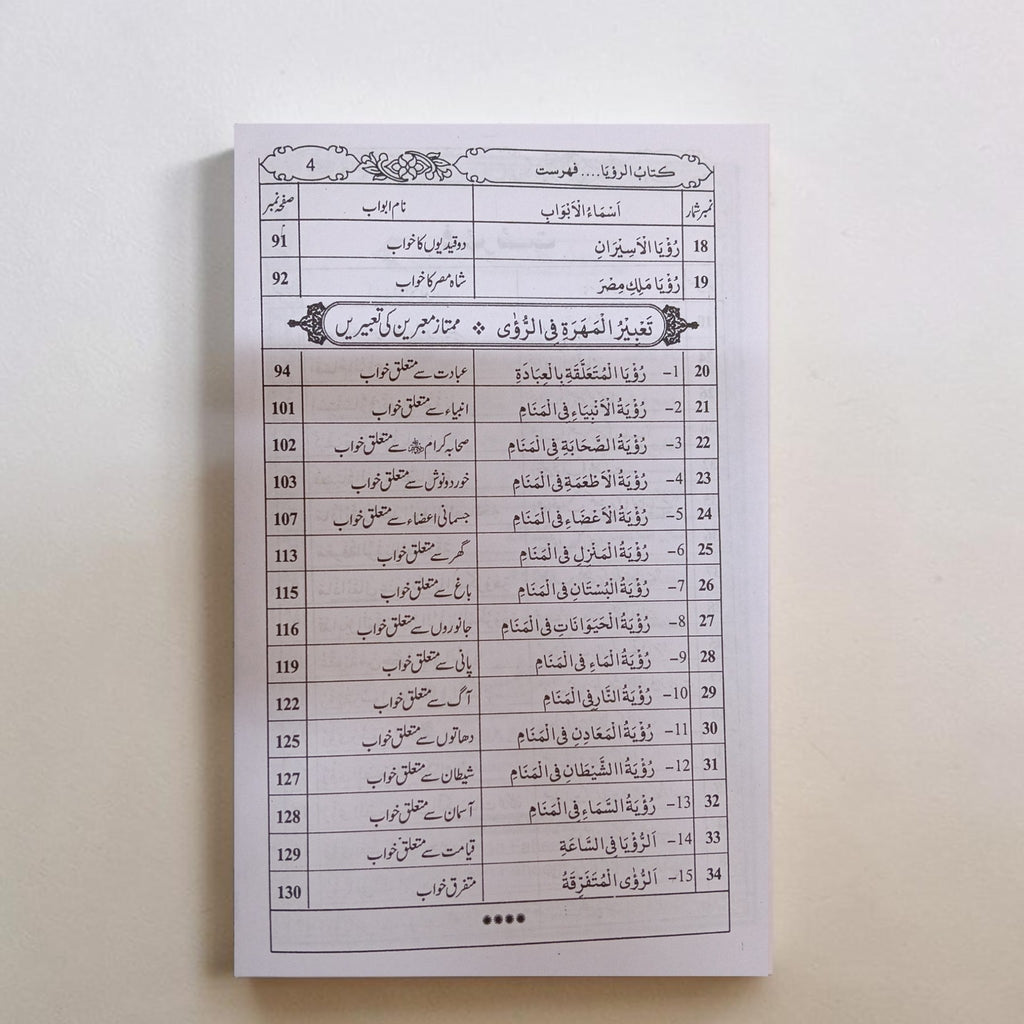 كتابُ الرؤيا.... فہرست 4
نمبرشمار اَسْمَاءُ الْاَبْوَابِ نام ابواب صفحہ نمبر
18 رُؤْيَا الْاَسِيْرَانِ دو قیدیوں کا خواب 91
19 رُؤْيَا مَلِكِ مِصْرَ شاہ مصر کا خواب 92
تَعْبِيْرُ الْمَهَرَةِ فِى الرُّؤٰى ❖ ممتاز معبرین کی تعبیریں
20 1- رُؤْيَا الْمُتَعَلَّقَةِ بِالْعِبَادَةِ عبادت سے متعلق خواب 94
21 2- رُؤْيَةُ الْاَنْبِيَاءِ فِى الْمَنَامِ انبیاء سے متعلق خواب 101
22 3- رُؤْيَةُ الصَّحَابَةِ فِى الْمَنَامِ صحابہ کرام رضی اللہ عنہم سے متعلق خواب 102
23 4- رُؤْيَةُ الْاَطْعَمَةِ فِى الْمَنَامِ خوردونوش سے متعلق خواب 103
24 5- رُؤْيَةُ الْاَعْضَاءِ فِى الْمَنَامِ جسمانی اعضاء سے متعلق خواب 107
25 6- رُؤْيَةُ الْمَنْزِلِ فِى الْمَنَامِ گھر سے متعلق خواب 113
26 7- رُؤْيَةُ الْبُسْتَانِ فِى الْمَنَامِ باغ سے متعلق خواب 115
27 8- رُؤْيَةُ الْحَيَوَانَاتِ فِى الْمَنَامِ جانوروں سے متعلق خواب 116
28 9- رُؤْيَةُ الْمَاءِ فِى الْمَنَامِ پانی سے متعلق خواب 119
29 10- رُؤْيَةُ النَّارِ فِى الْمَنَامِ آگ سے متعلق خواب 122
30 11- رُؤْيَةُ الْمَعَادِنِ فِى الْمَنَامِ دھاتوں سے متعلق خواب 125
31 12- رُؤْيَةُ االشَّيْطَانِ فِى الْمَنَامِ شیطان سے متعلق خواب 127
32 13- رُؤْيَةُ السَّمَاءِ فِى الْمَنَامِ آسمان سے متعلق خواب 128
33 14- اَلرُّؤْيَا فِى السَّاعَةِ قیامت سے متعلق خواب 129
34 15- اَلرُّؤٰى الْمُتَفَرِّقَةُ متفرق خواب 130